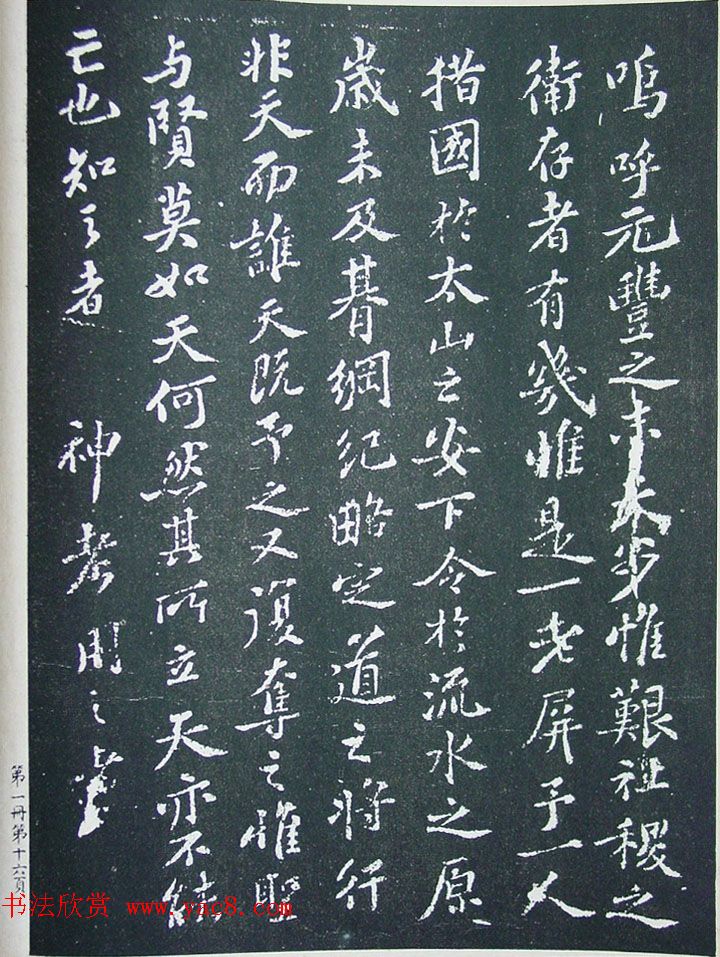 嗚呼元豐之末天步惟艱社稷之
衛存者有幾惟是一老屏予一人
措國於太山之安下令於流水之原
歲未及朞綱紀略定道之將行
非天而誰天既予之又復奪之惟聖
与賢莫如天何然其所立天亦不能
亡也知之者 神考用之
第一冊第十六頁
书法欣赏 www.yac8.com